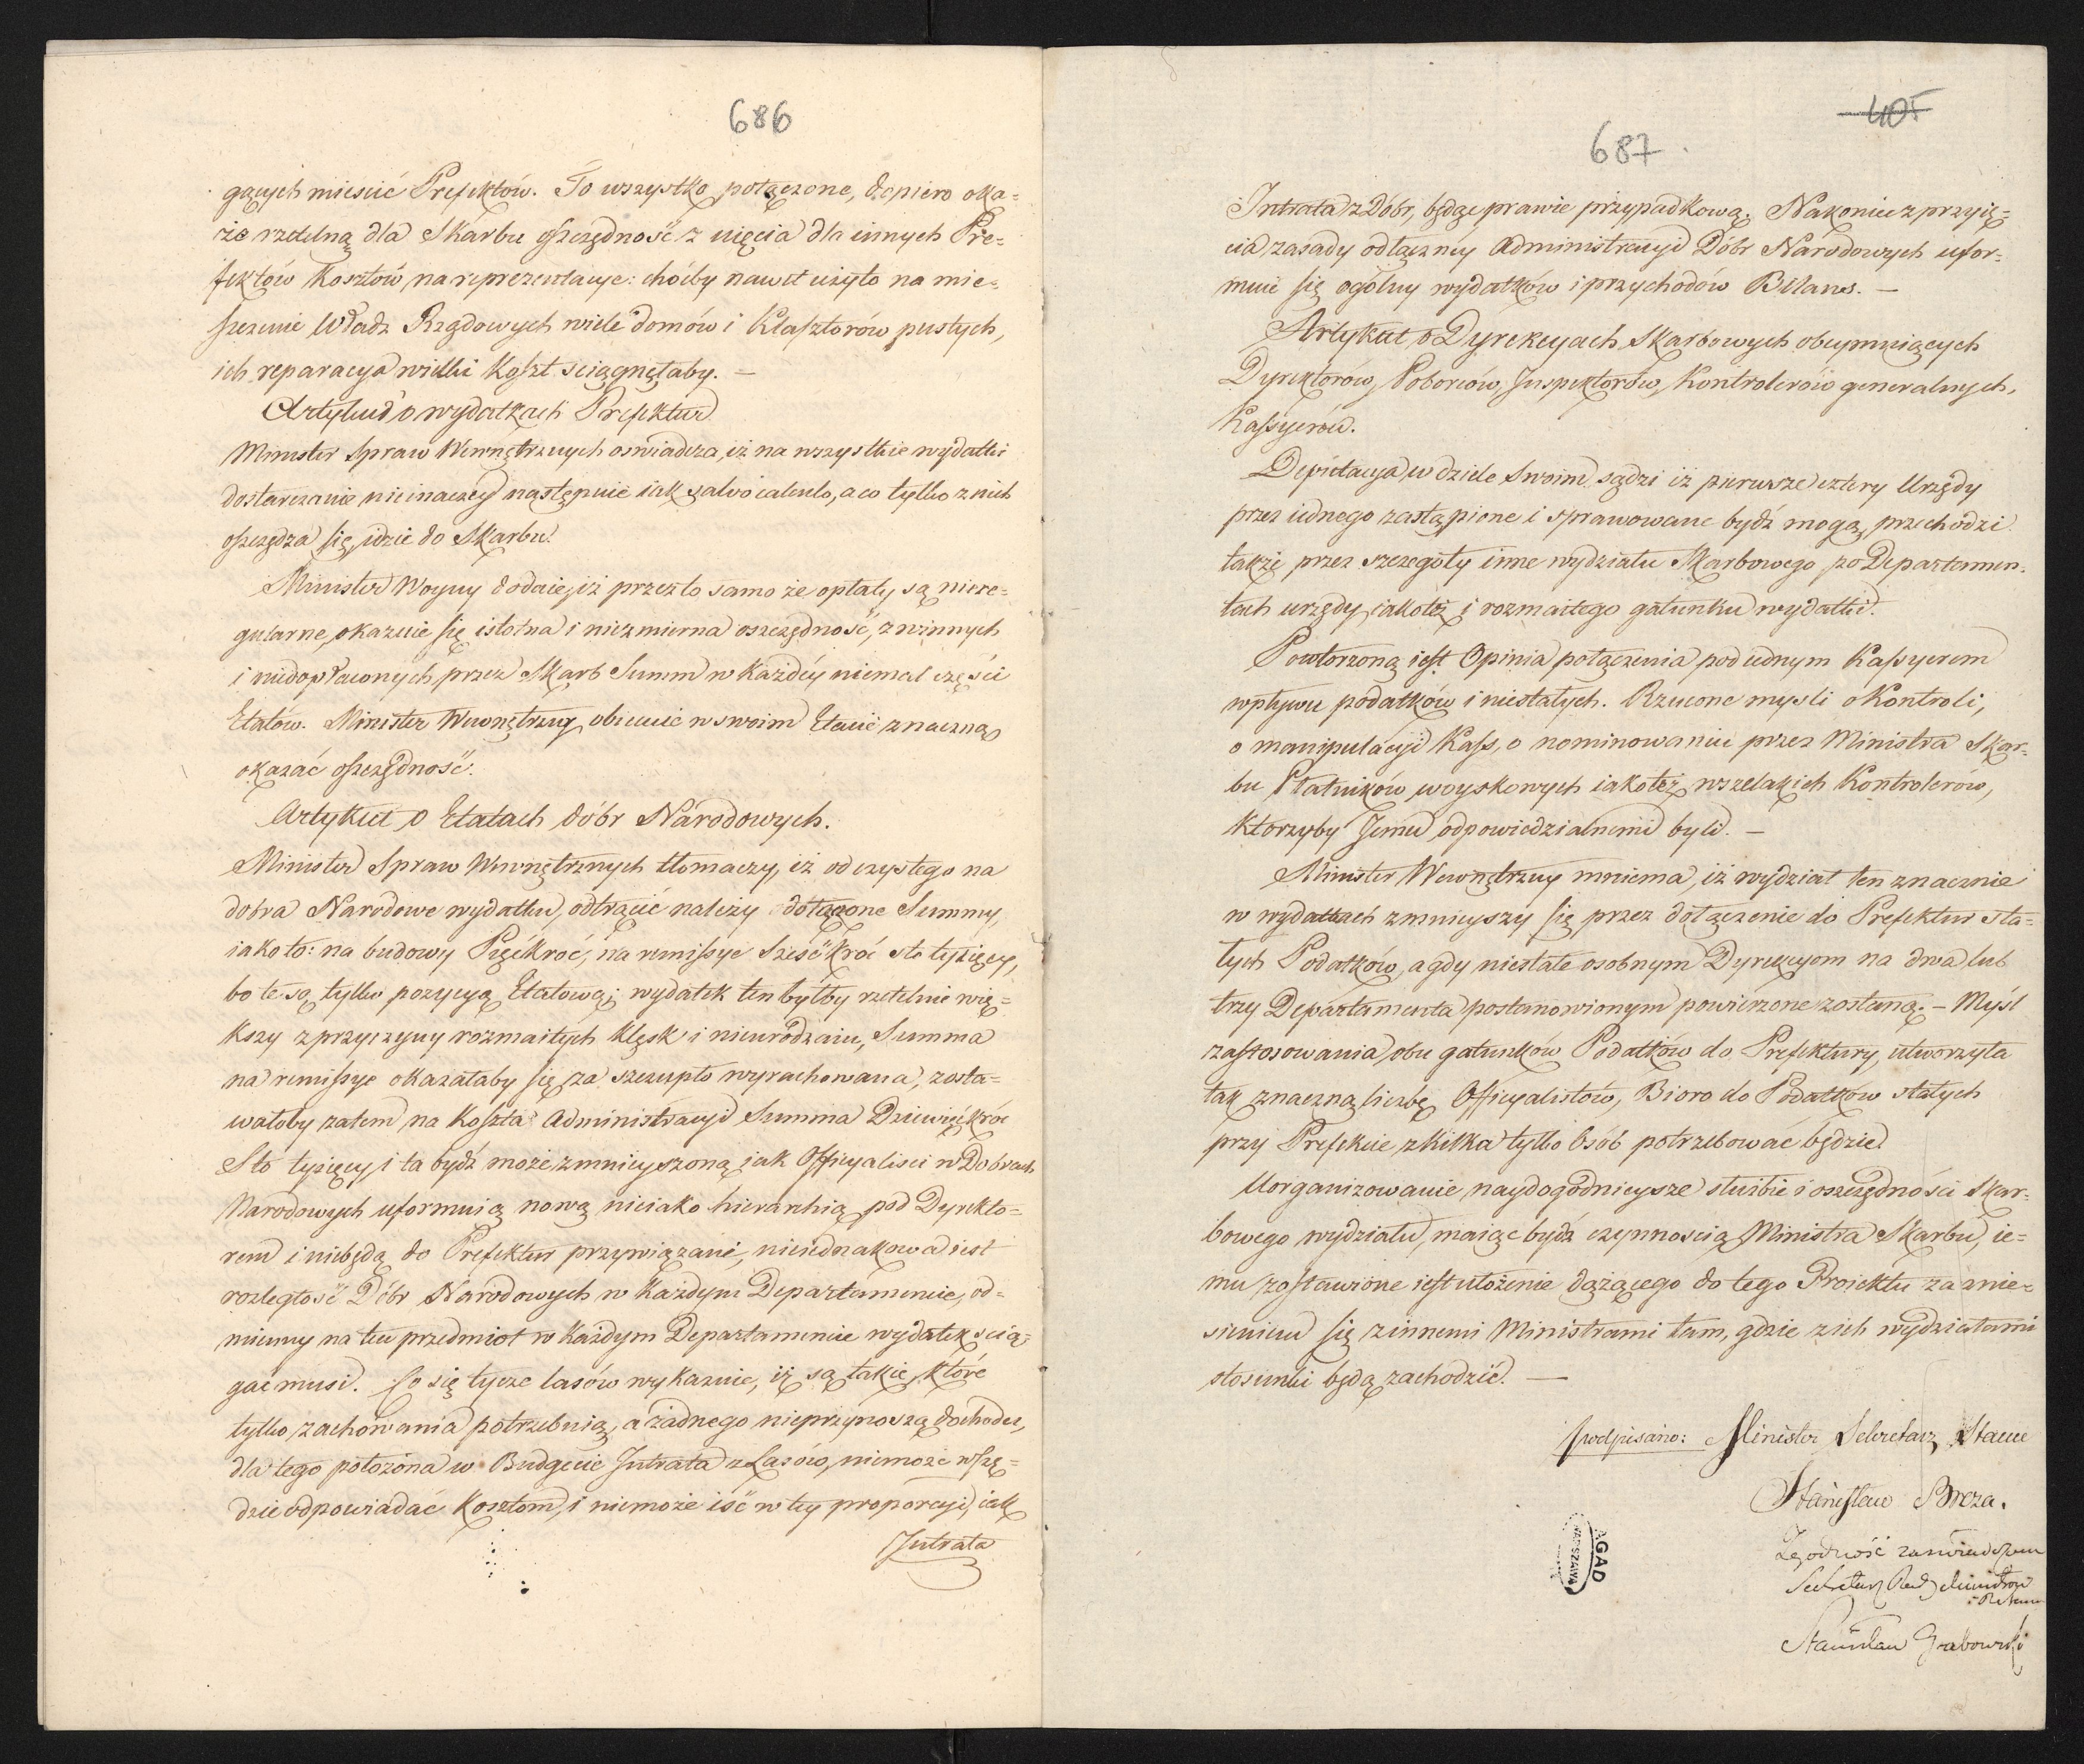 686
gących mieścić Prefektów. To wszystko połączone, dopiero oka=
że rzetelną dla Skarbu oszczędność z uięcia dla innych Pre=
fektów Kosztów na reprezentacye: choćby nawet użyto na mie=
szczenie Władz Rządowych wiele domów i Klasztorów pustych,
ich reparacya wielki Koszt sciągnęłaby. —
Artykuł o wydatkach Prefektur
Minister Spraw Wewnętrznych oswiadcza, iż na wszystkie wydatki
dostarczanie nieinaczey następuie iak salvo calculo, a co tylko z nich
oszczędza się, idzie do Skarbu.
Minister Woyny dodaie, iż przez to samo że opłaty są niere=
gularne, okazuie się istotna i niezmierna oszczędność, z winnych
i niedopłaconych przez Skarb Summ w każdéy niemal części
Etatów. Minister Wewnętrzny obiecuie w swoim Etacie znaczną
okazać oszczędność.
Artykuł o Etatach dóbr Narodowych.
Minister Spraw Wewnętrznych tłomaczy, iż od czystego na
dobra Narodowe wydatku, odtrącić należy dołączone Summy,
iako to: na budowy Pięćkroć, na remissye Sześćkroć sto tysięcy,
bo te są tylko pozycyą Etatową; wydatek ten byłby rzetelnie wię=
kszy z przyczyny rozmaitych klęsk i nieurodzaiu, Summa
na remissye okazałaby się za szczupło wyrachowana, zosta=
wałoby zatem na Koszta Administracyi Summa Dziewięćkroć
Sto tysięcy, i ta bydź może zmnieyszoną, iak Officyaliści w Dobrach
Narodowych uformuią nową nieiako hierarchią pod Dyrekto=
rem i niebędą do Prefektur przywiązani, nieiednakowa iest
rozległość Dóbr Narodowych w każdym Departamencie, od=
mienny na ten przedmiot w każdym Departamencie wydatek scią=
gać musi. Co się tycze lasów wykazuie, iż są takie, które
tylko zachowania potrzebuią, a żadnego nieprzynoszą dochodu,
dla tego położona w Budgecie Intrata z Lasów, niemoże wszę=
dzie odpowiadać Kosztom, i niemoże iść w tey proporcyi, iak
Intrata
405
687
Intrata z Dóbr, będąc prawie przypadkową. Nakoniec z przyię=
cia zasady odłączney Administracyi Dóbr Narodowych ufor=
muie się ogólny wydatków i przychodów Bilans. —
Artykuł o Dyrekcyach Skarbowych obeymuiących
Dyrektorów, Poborców, Inspektorów, Kontrolerów generalnych,
Kassyerów.
Deputacya w dziele Swoim sądzi iż pierwsze cztery Urzędy
przez iednego zastąpione i sprawowane bydź mogą, przechodzi
także przez szczegóły inne wydziału Skarbowego po Departamen=
tach urzędy, iakoteż i rozmaitego gatunku wydatki.
Powtorzoną iest Opinia połączenia pod iednym Kassyerem
wpływu podatków i niestałych. Rzucone mysli o Kontroli,
o manipulacyi Kass, o nominowaniu przez Ministra Skar=
bu Płatników woyskowych iakoteż wszelakich Kontrolerów,
ktorzyby Jemu odpowiedzialnemi byli. —
Minister Wewnętrzny mniema, iż wydział ten znacznie
w wydatkach zmnieyszy się przez dołączenie do Prefektur sta=
łych Podatków, a gdy niestałe osobnym Dyrekcyom na dwa lub
trzy Departamenta postanowionym powierzone zostaną. — Myśl
zastosowania obu gatunków Podatków do Prefektury, utworzyła
tak znaczną liczbę Officyalistów, Bióro do Podatków stałych
przy Prefekcie z kilka tylko Osób potrzebować będzie.
Uorganizowanie naydogodnieysze służbie i oszczędności Skar=
bowego wydziału, maiąc bydź czynnością Ministra Skarbu, ie=
mu zostawione iest ułożenie dążącego do tego Proiektu za znie=
sieniem się z innemi Ministrami tam, gdzie z ich wydziałami
stosunki będą zachodzić. —
podpisano: Minister Sekretarz Stanu
Stanisław Breza.
Zgodność zaświadczam
Sekretarz Rady Ministrów
Stanisław Grabowski
AGAD
WARSZAWA